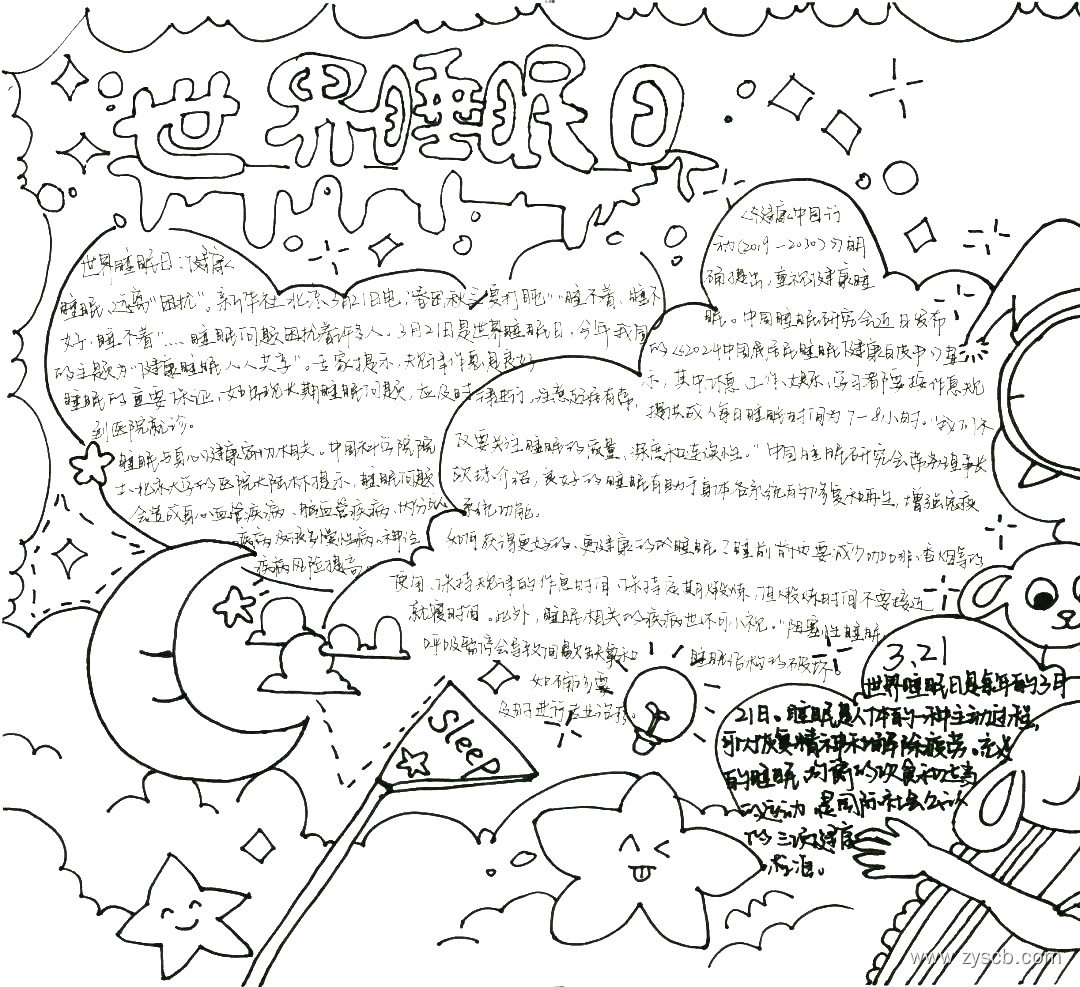 世界睡眠日
世界睡眠日：健康
睡眠、远离"困扰"。新华社北京3月21日电"春困秋乏夏打盹""睡不着、睡不
好、睡不着"……睡眠问题困扰着许多人。3月21日是世界睡眠日，今年我国
的主题为"健康睡眠 人人共享"。专家提示，规律作息是良好
睡眠的重要保证，如出现长期睡眠问题，应及时
到医院就诊。
睡眠与身心健康密切相关。中国科学院院
士、北京大学 医院 陆林提示，睡眠问题
会造成 心血管疾病、脑血管疾病、内分泌
疾病 慢性病、神经
疾病风险提高。
《健康中国行
动（2019—2030）》明
确提出，重视健康睡
眠。中国睡眠研究会近日发布
的《2024中国居民睡眠健康白皮书》显
示，其中休息、工作、娱乐、学习 作息规律进行，注意
提供成人每日睡眠时间为7—8小时。"我们不
仅要关注睡眠的质量，深度和连续性。"中国睡眠研究会 理事长
介绍，良好的睡眠有助于身体各系统的修复和再生，增强免疫
系统功能。
如何获得更好的、更健康的睡眠？睡前 要减少咖啡、香烟等的
使用，保持规律的作息时间，保持定期锻炼，但锻炼时间不要接近
就寝时间。此外，睡眠相关的疾病也不可小视。"阻塞性睡眠
呼吸暂停会导致间歇缺氧和 睡眠结构的破坏。
如 需要
及时进行 治疗。
Sleep
3.21
世界睡眠日是每年的3月
21日。睡眠是人体的一种主动过程，
可以恢复精神和解除疲劳。充足
的睡眠、均衡的饮食和适当
的运动，是国际社会公认
的三项健康
标准。
www.zyscb.com